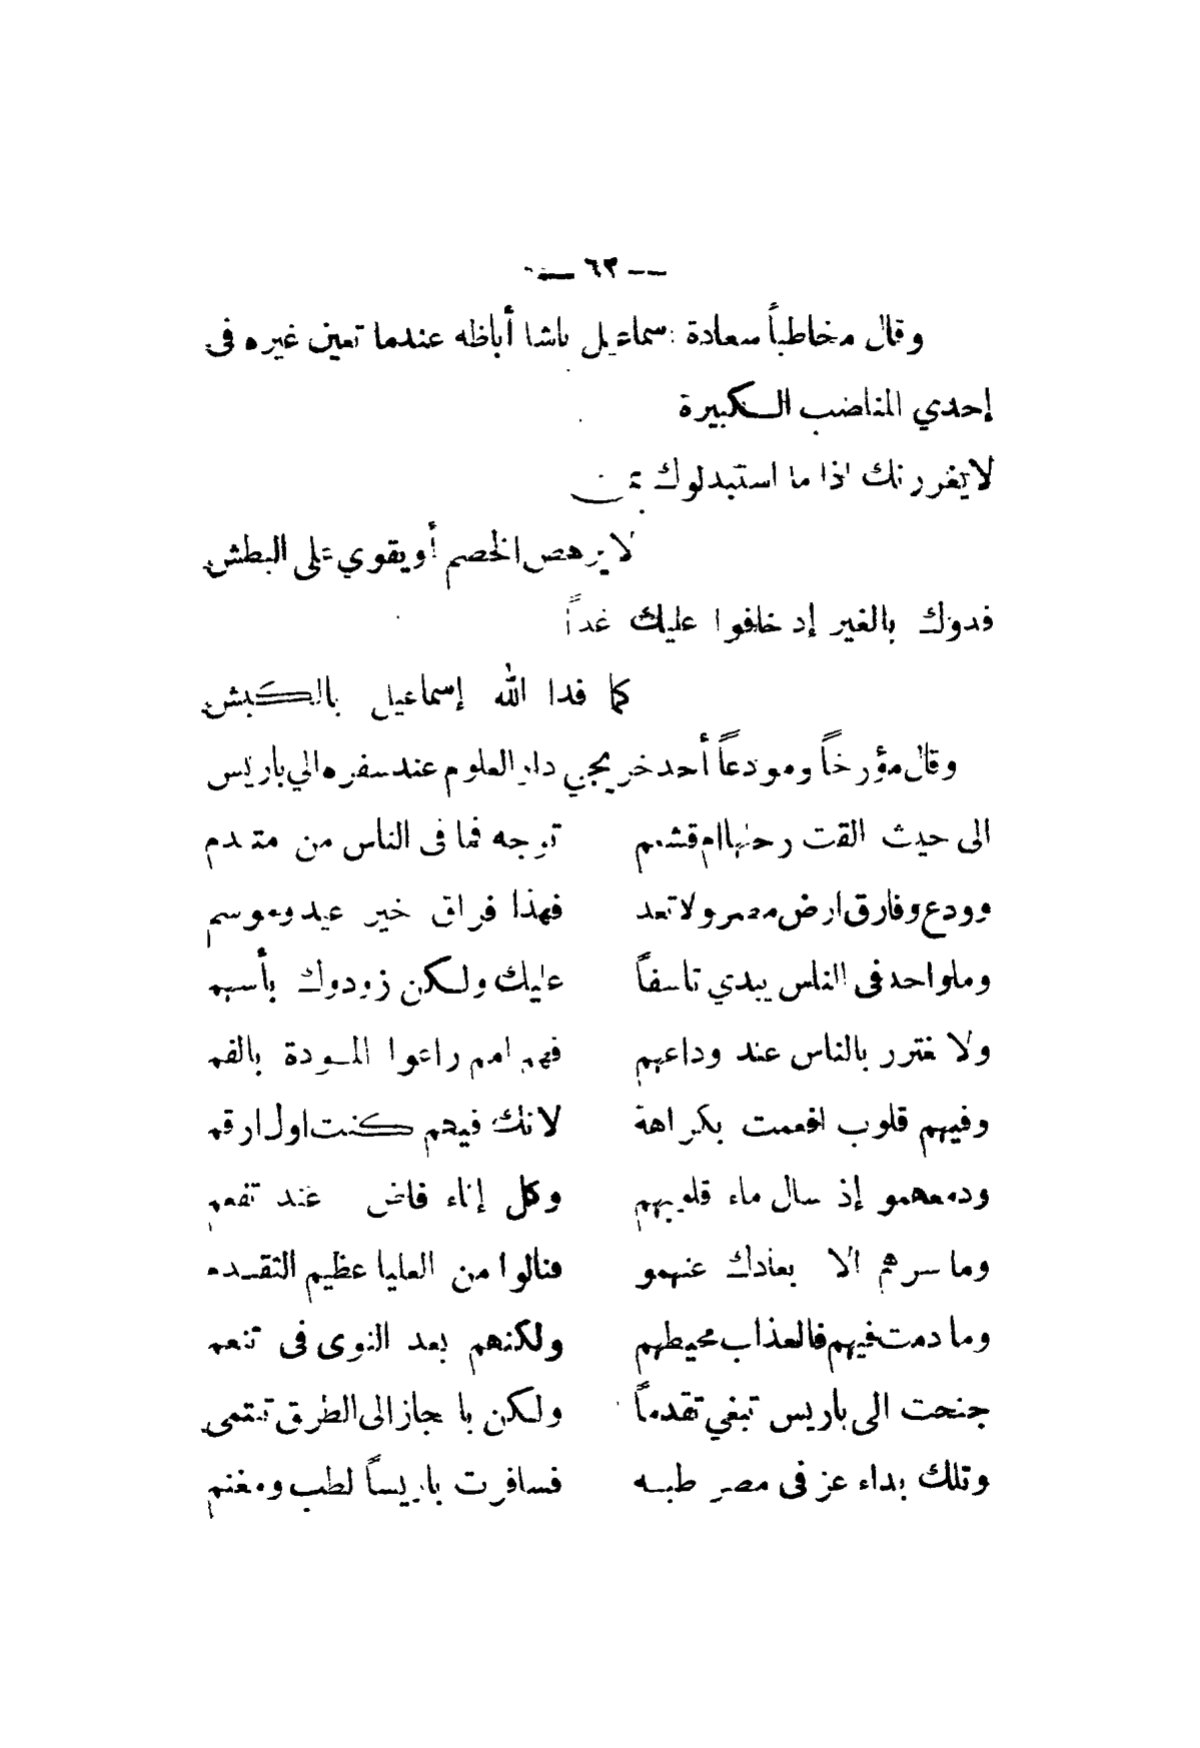 — ٦٣ —
وقال مخاطباً سعادة إسماعيل باشا أباظه عندما تعين غيره فى
إحدي المناضب الكبيرة
لا يغررنك اذا ما استبدلوك بمن
لا يرهص الخصم أو يقوي على البطش
فدوك بالغير إد خافوا عليك غداً
كما فدا الله إسماعيل بالكبش
وقال مؤرخاً ومودعاً أحد خريجي دار العلوم عند سفره الي باريس
الى حيث القت رحلها ام قشعم توجه فما فى الناس من متندم
وودع وفارق ارض مصر ولا تعد فهذا فراق خير عيد وموسم
وما واحد فى الناس يبدي تاسفاً عليك ولكن زودوك بأسهم
ولا تغترر بالناس عند وداعهم فهم امم راعوا المودة بالفم
وفيهم قلوب افعمت بكراهة لانك فيهم كنت اول ارقم
ودمعهمو إذ سال ماء قلوبهم وكل إناء فائض عند تفعم
وما سرهم الا بعادك عنهمو فنالوا من العليا عظيم التقدم
وما دمت فيهم فالعذاب محيطهم ولكنهم بعد النوى فى تنعم
جنحت الى باريس تبغي تقدماً ولكن با جاز الى الطرق تنتمى
وتلك بداء عز فى مصر طبه فسافرت باريساً لطب ومغنم